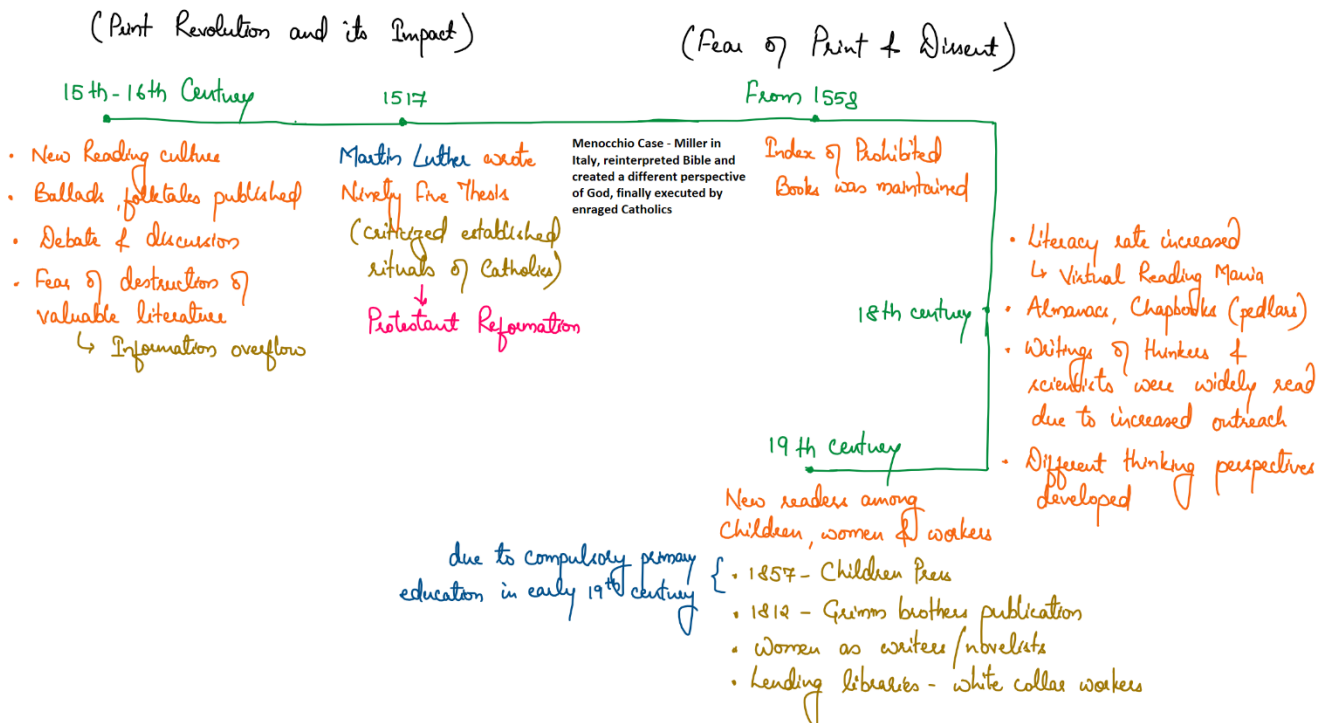 (Print Revolution and its Impact)
(Fear of Print & Dissent)
15th-16th Century
• New Reading culture
• Ballads, folktales published
• Debate & discussion
• Fear of destruction of
valuable literature
↳ Information overflow
1517
Martin Luther wrote
Ninety Five Thesis
(criticized established
rituals of Catholics)
↓
Protestant Reformation
Menocchio Case - Miller in
Italy, reinterpreted Bible and
created a different perspective
of God, finally executed by
enraged Catholics
From 1558
Index of Prohibited
Books was maintained
18th century
• Literacy rate increased
↳ Virtual Reading Mania
• Almanacs, Chapbooks (pedlars)
• Writings of thinkers &
scientists were widely read
due to increased outreach
• Different thinking perspectives
developed
19th century
New readers among
Children, women & workers
due to compulsory primary
education in early 19th century
{ • 1857 - Children Press
• 1812 - Grimm brothers publication
• Women as writers/novelists
• Lending libraries - white collar workers